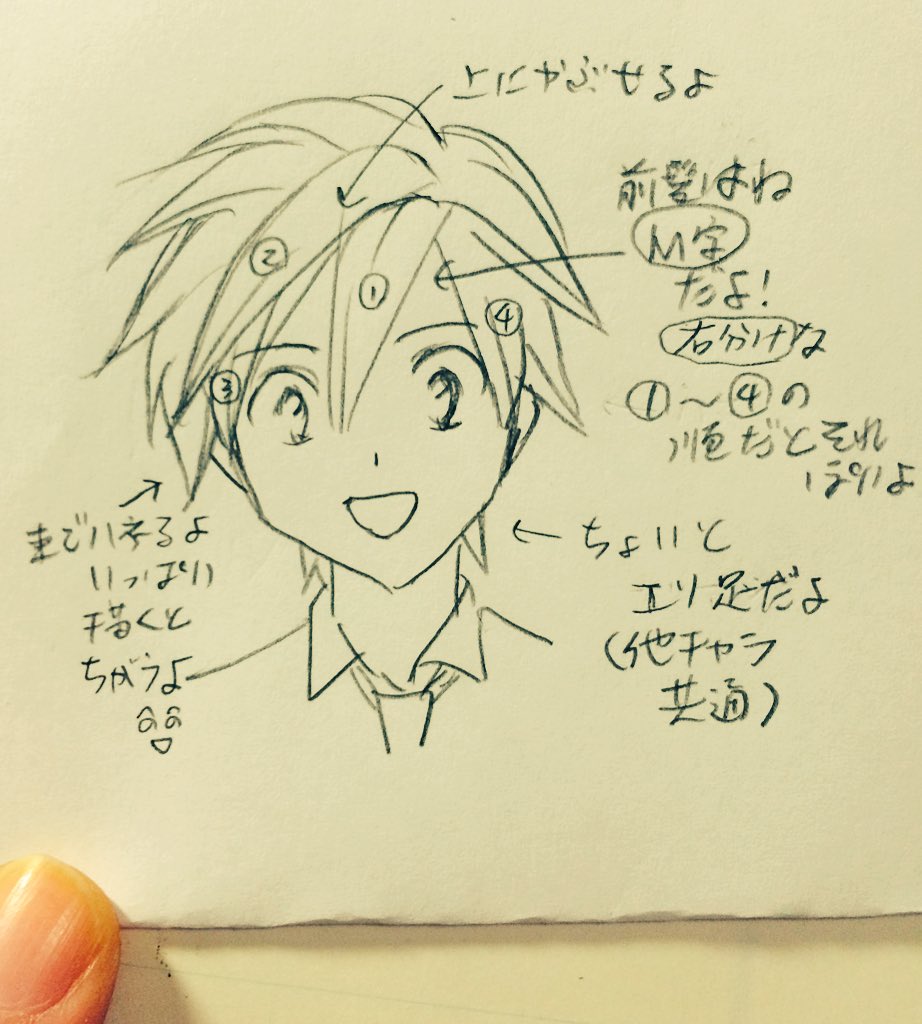 上にかぶせるよ
前髪はね
M字
だよ!
右分けな
①〜④の
順だとそれ
ぽいよ
②
①
④
③
までハネるよ
いっぱい
描くと
ちがうよ
ちょいと
エリ足だよ
(他キャラ
共通)